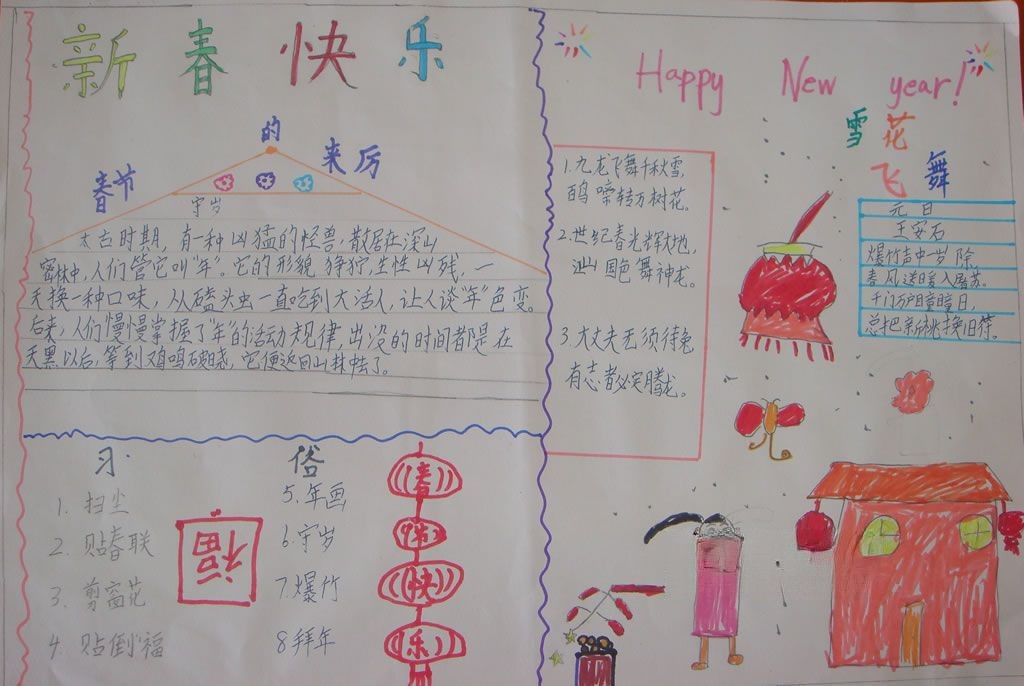 新春快乐
春节的来历
守岁
太古时期,有一种凶猛的怪兽,散居在深山
密林中,人们管它叫"年"。它的形貌狰狞,生性凶残,一
天换一种口味,从磕头虫一直吃到大活人,让人谈"年"色变。
后来,人们慢慢掌握了"年"的活动规律,出没的时间都是在
天黑以后,等到鸡鸣破晓,它便返回山林去了。
习俗
1. 扫尘
2. 贴春联
3. 剪窗花
4. 贴倒福
福
5. 年画
6. 守岁
7. 爆竹
8 拜年
春
节
快
乐
Happy New year!
1. 九龙飞舞千秋雪,
百鸟啼转万树花。
2. 世纪春光辉大地,
山国色舞神龙。
3. 大丈夫无须待兔
有志者必定腾龙。
雪花
飞舞
元日
王安石
爆竹声中一岁除
春风送暖入屠苏。
千门万户瞳瞳日,
总把新桃换旧符。